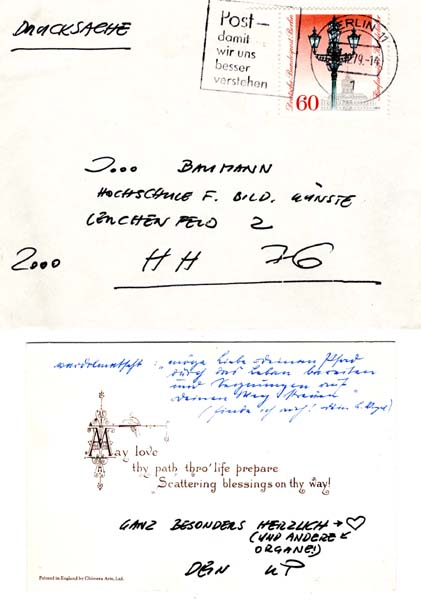 DRUCKSACHE
Post–
damit
wir uns
besser
verstehen
BERLIN 11
79.-14
1
Deutsche Bundespost Berlin
60
J... BAUMANN
HOCHSCHULE F. BILD. KÜNSTE
LERCHENFELD 2
2000 HH 76
verdolmetscht: "möge Liebe deinen Pfad
durch das Leben bereiten
und Segnungen auf
deinen Weg streuen"
(finde ich auch! dein
May love
thy path thro' life prepare
Scattering blessings on thy way!
GANZ BESONDERS HERZLICH → ♡
(UND ANDERE
ORGANE!)
DEIN
Printed in England by Chiswea Arts, Ltd.